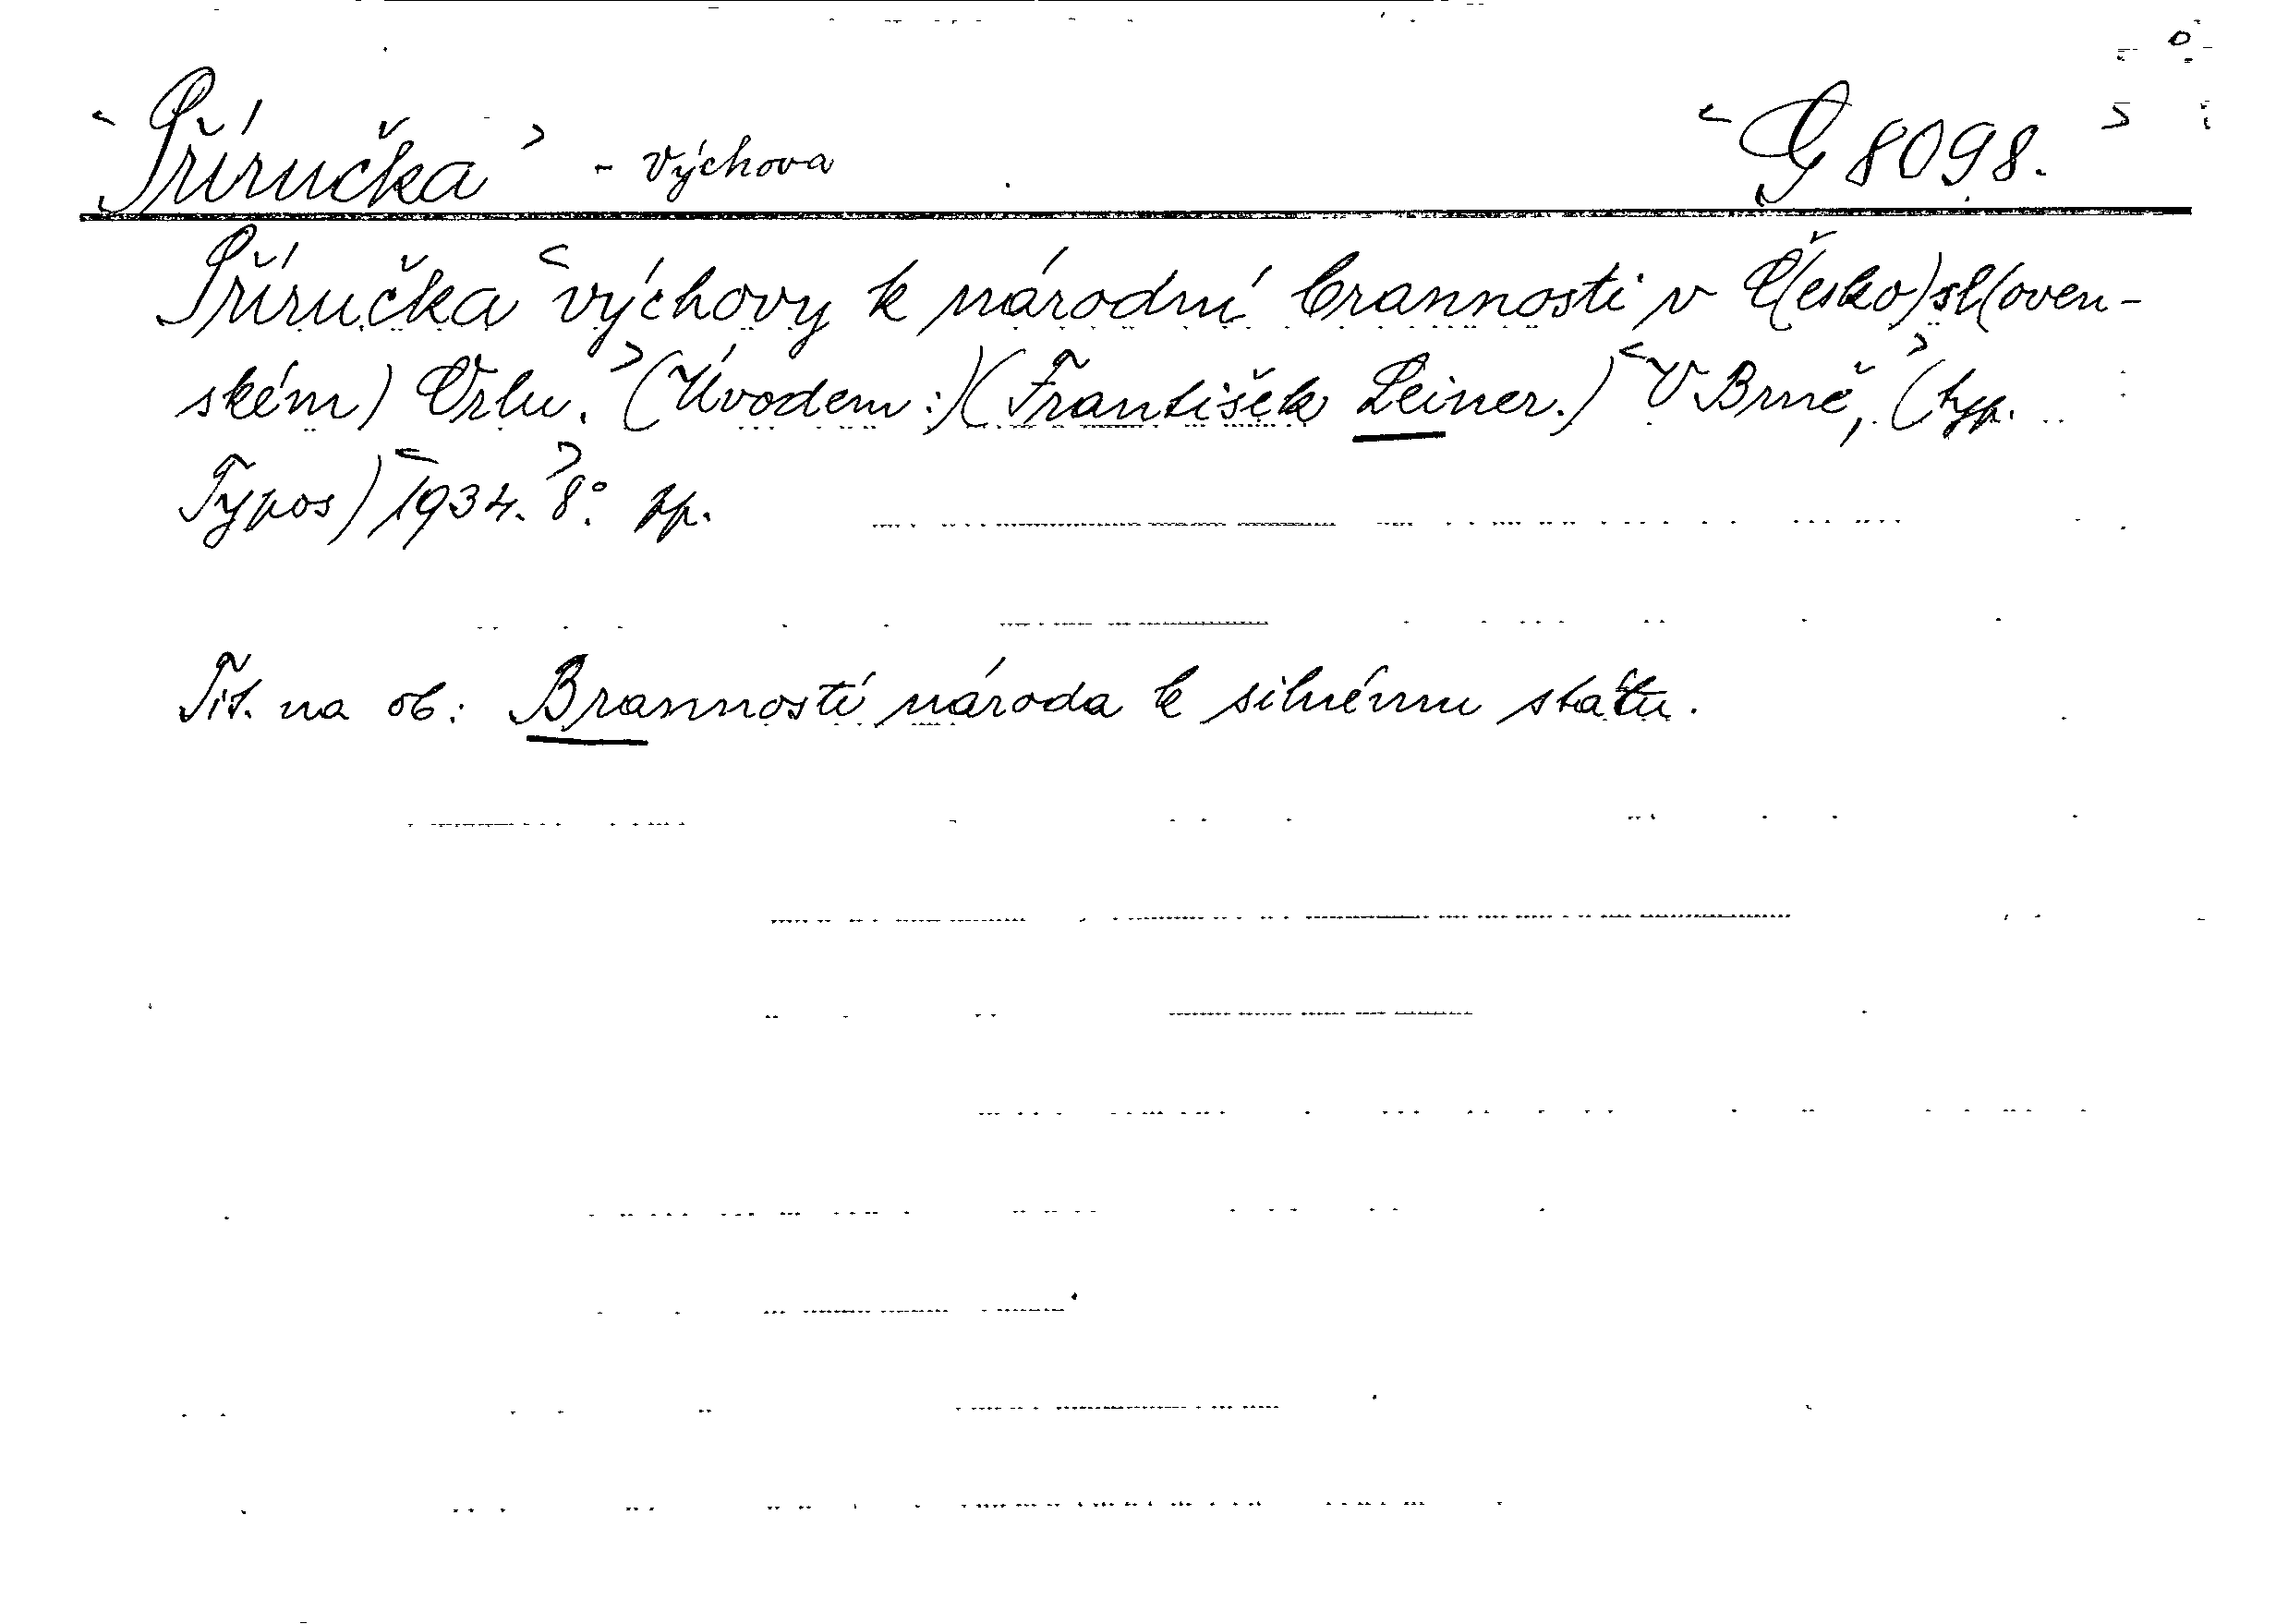 <Příručka> - výchova <G 8098.>
Příručka <výchovy k národní brannosti v Č(esko)sl(oven-
ském) Orlu.> (Úvodem:)(František Leiner.) <V Brně,> (typ.
Typos) <1934.> 8°. pp.
Tit. na ob: Branností národa k silnému státu.